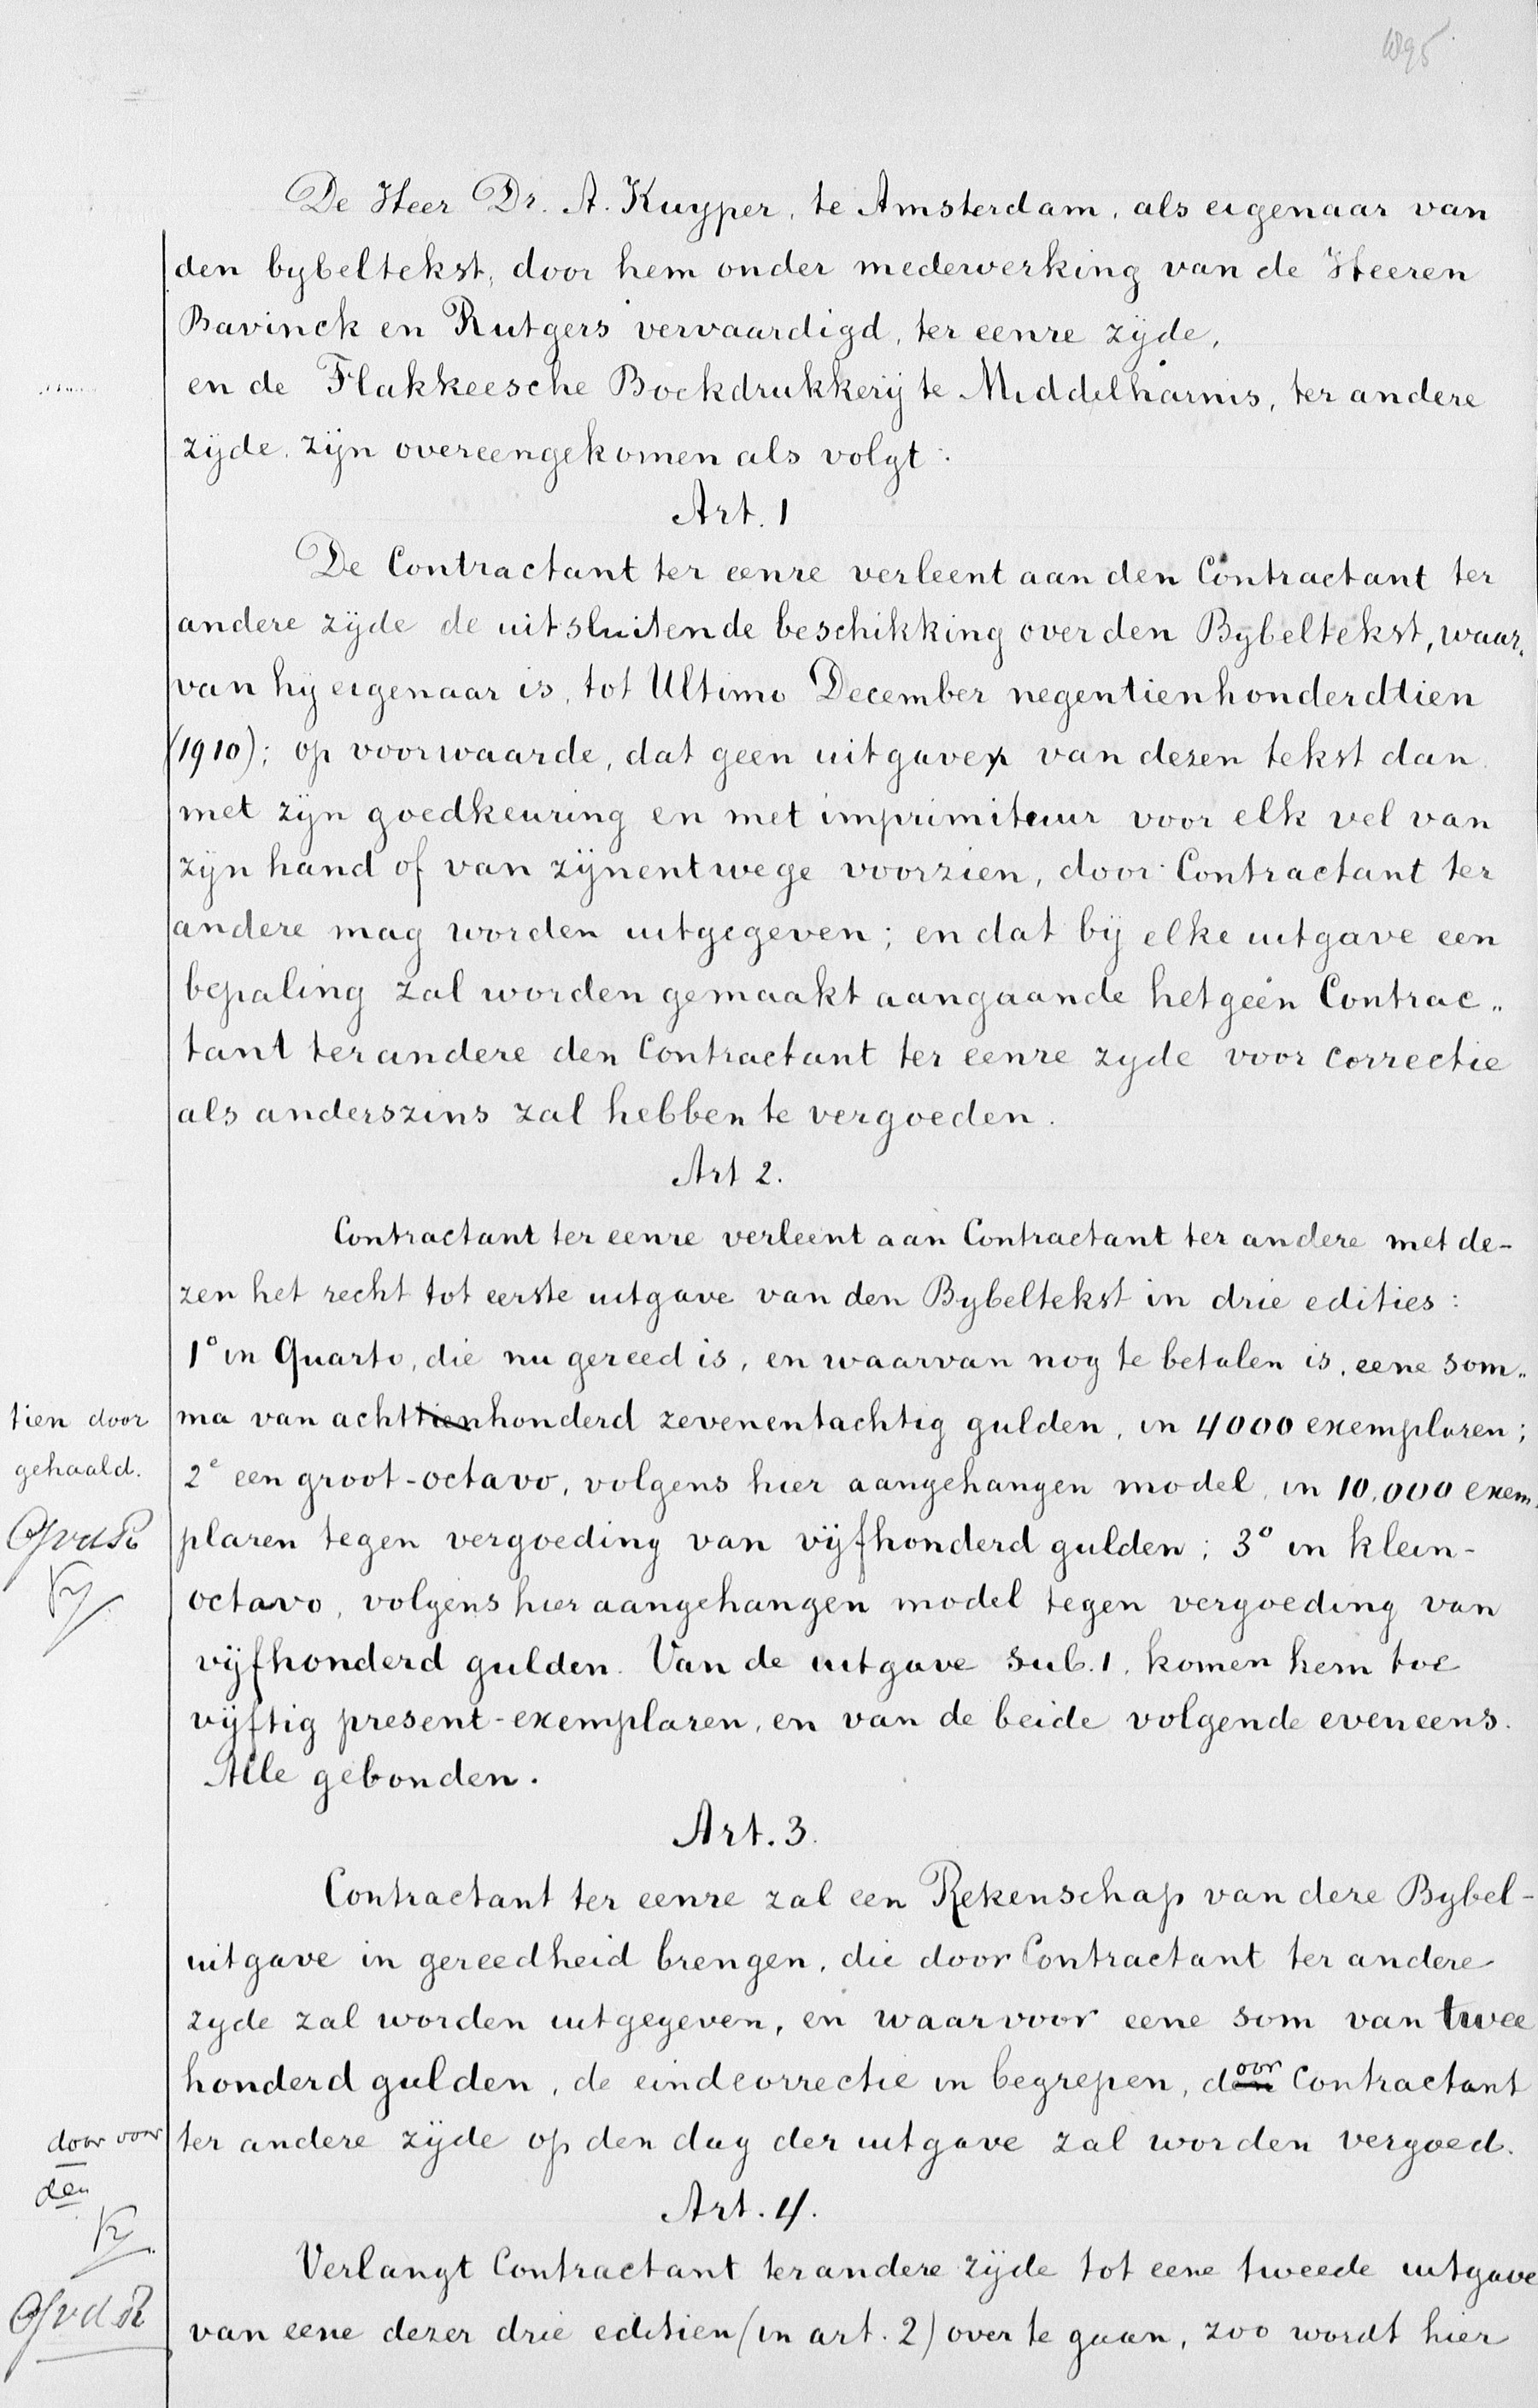 1895
De Heer Dr. A. Kuyper, te Amsterdam, als eigenaar van
den bybeltekst, door hem onder medewerking van de Heeren
Bavinck en Rutgers vervaardigd, ter eenre zijde,
en de Flakkeesche Boekdrukkerij te Middelharnis, ter andere
zijde, zijn overeengekomen als volgt:
Art. 1
De Contractant ter eenre verleent aan den Contractant ter
andere zijde de uitsluitende beschikking over den Bybeltekst, waar„
van hij eigenaar is, tot Ultimo December negentienhonderdtien
(1910); op voorwaarde, dat geen uitgave van dezen tekst dan
met zijn goedkeuring en met imprimituur voor elk vel van
zijn hand of van zijnentwege voorzien, door Contractant ter
andere mag worden uitgegeven; en dat bij elke uitgave een
bepaling zal worden gemaakt aangaande hetgeen Contrac„
tant ter andere den Contractant ter eenre zyde voor correctie
als anderszins zal hebben te vergoeden.
Art 2.
Contractant ter eenre verleent aan Contractant ter andere met de-
zen het recht tot eerste uitgave van den Bybeltekst in drie edities:
1° in Quarto, die nu gereed is, en waarvan nog te betalen is, eene som„
tien door ma van achttienhonderd zevenentachtig gulden, in 4000 exemplaren;
gehaald. 2° een groot-octavo, volgens hier aangehangen model, in 10,000 exem„
plaren tegen vergoeding van vijfhonderd gulden; 3° in klein-
octavo, volgens hier aangehangen model tegen vergoeding van
vijfhonderd gulden. Van de uitgave sub. 1. komen hem toe
vijftig present-exemplaren, en van de beide volgende eveneens.
Alle gebonden.
Art. 3.
Contractant ter eenre zal een Rekenschap van deze Bybel-
uitgave in gereedheid brengen, die door Contractant ter andere
zyde zal worden uitgegeven, en waarvoor eene som van twee
honderd gulden, de eindcorrectie in begrepen, door Contractant
door voor ter andere zijde op den dag der uitgave zal worden vergoed.
den
Art. 4.
Verlangt Contractant ter andere zijde tot eene tweede uitgave
van eene dezer drie editien (in art. 2) over te gaan, zoo wordt hier